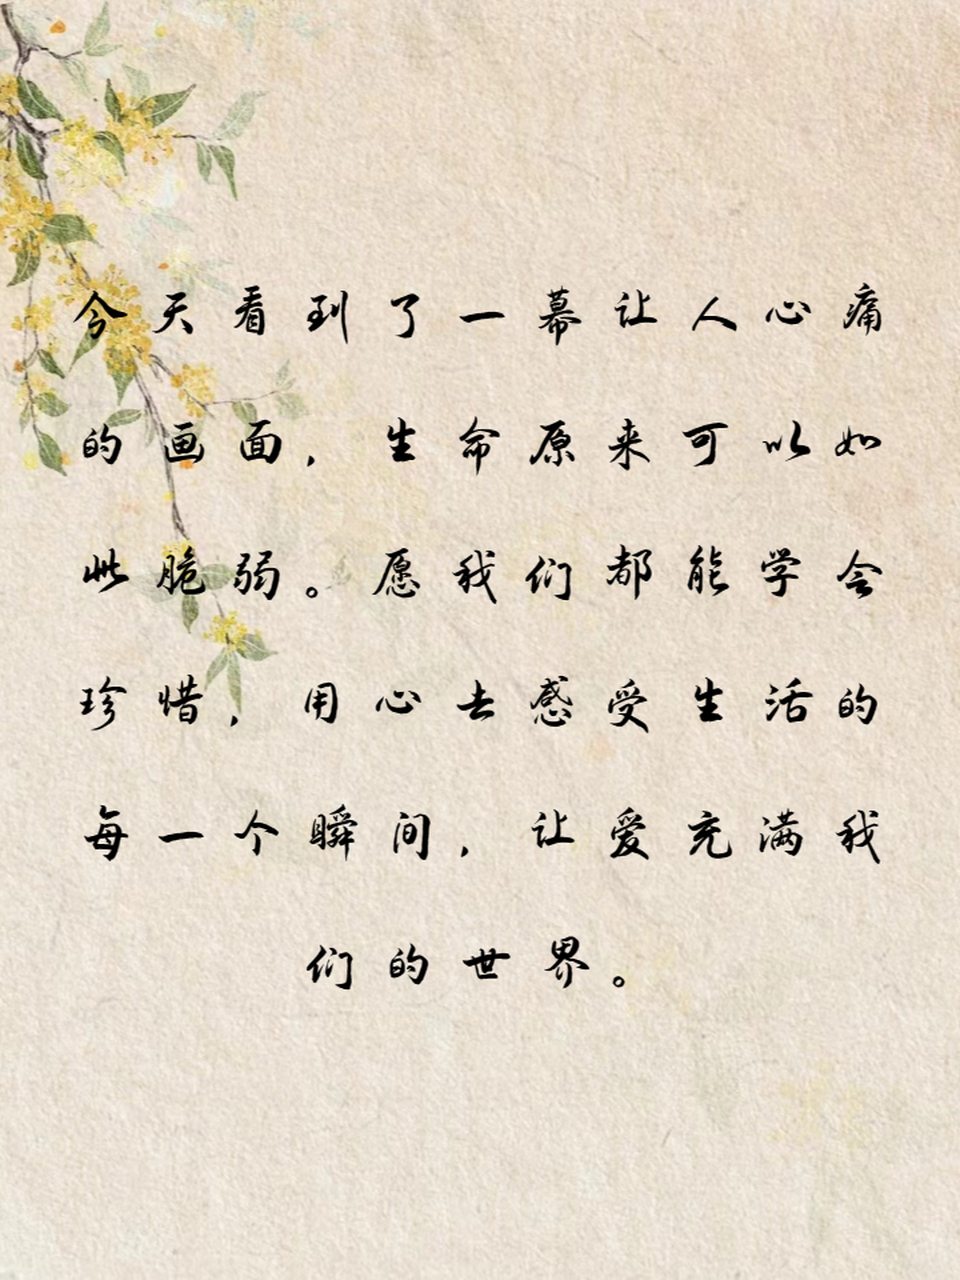 今天看到了一幕让人心痛
的画面，生命原来可以如
此脆弱。愿我们都能学会
珍惜，用心去感受生活的
每一个瞬间，让爱充满我
们的世界。